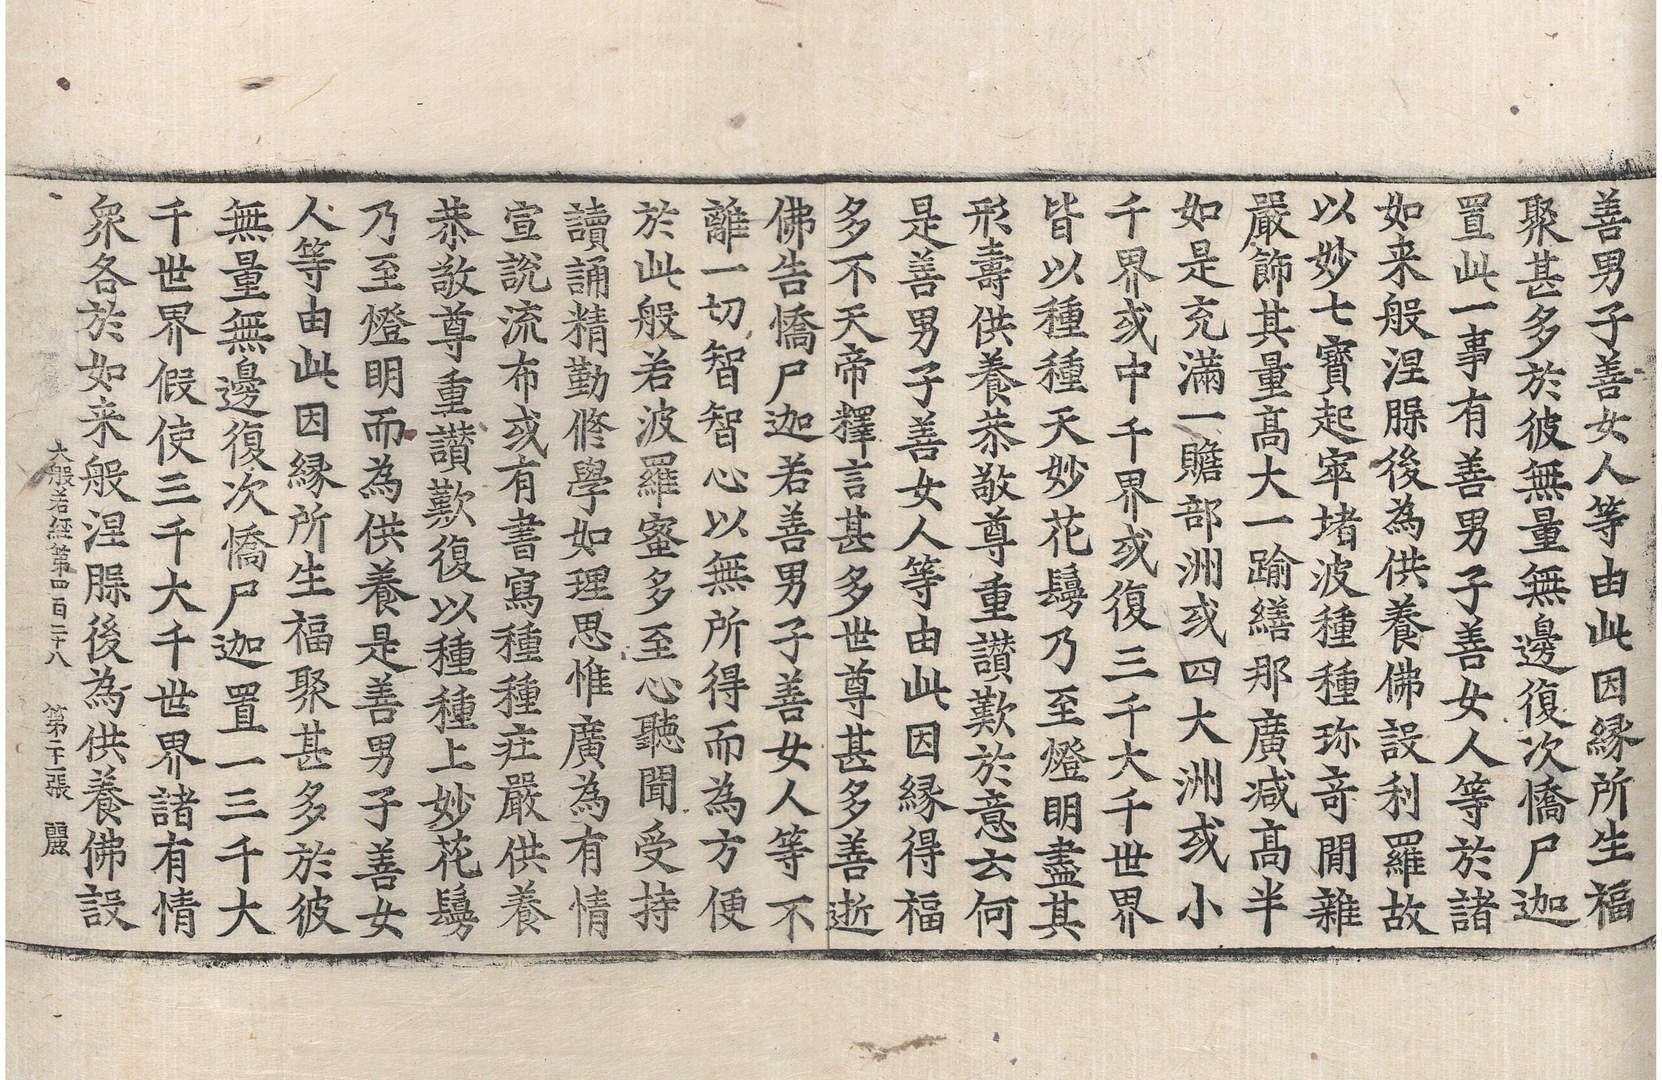 善男子善女人等由此因縁所生福
聚甚多於彼無量無邊復次憍尸迦
置此一事有善男子善女人等於諸
如来般涅脲後為供養佛設利羅故
以妙七寶起窣堵波種種珎竒閒雜
嚴飾其量髙大一踰繕那廣减髙半
如是充滿一贍部洲或四大洲或小
千界或中千界或復三千大千世界
皆以種種天妙花鬘乃至燈明盡其
形壽供養恭敬尊重讃歎於意云何
是善男子善女人等由此因縁得福
多不天帝釋言甚多世尊甚多善逝
佛告憍尸迦若善男子善女人等不
離一切智智心以無所得而為方便
於此般若波羅蜜多至心聽聞受持
讀誦精勤修學如理思惟廣為有情
宣說流布或有書寫種種莊嚴供養
恭敬尊重讃歎復以種種上妙花鬘
乃至燈明而為供養是善男子善女
人等由此因縁所生福聚甚多於彼
無量無邊復次憍尸迦置一三千大
千世界假使三千大千世界諸有情
衆各於如来般涅脲後為供養佛設
大般若經第四百二十八 第二十二張 麗